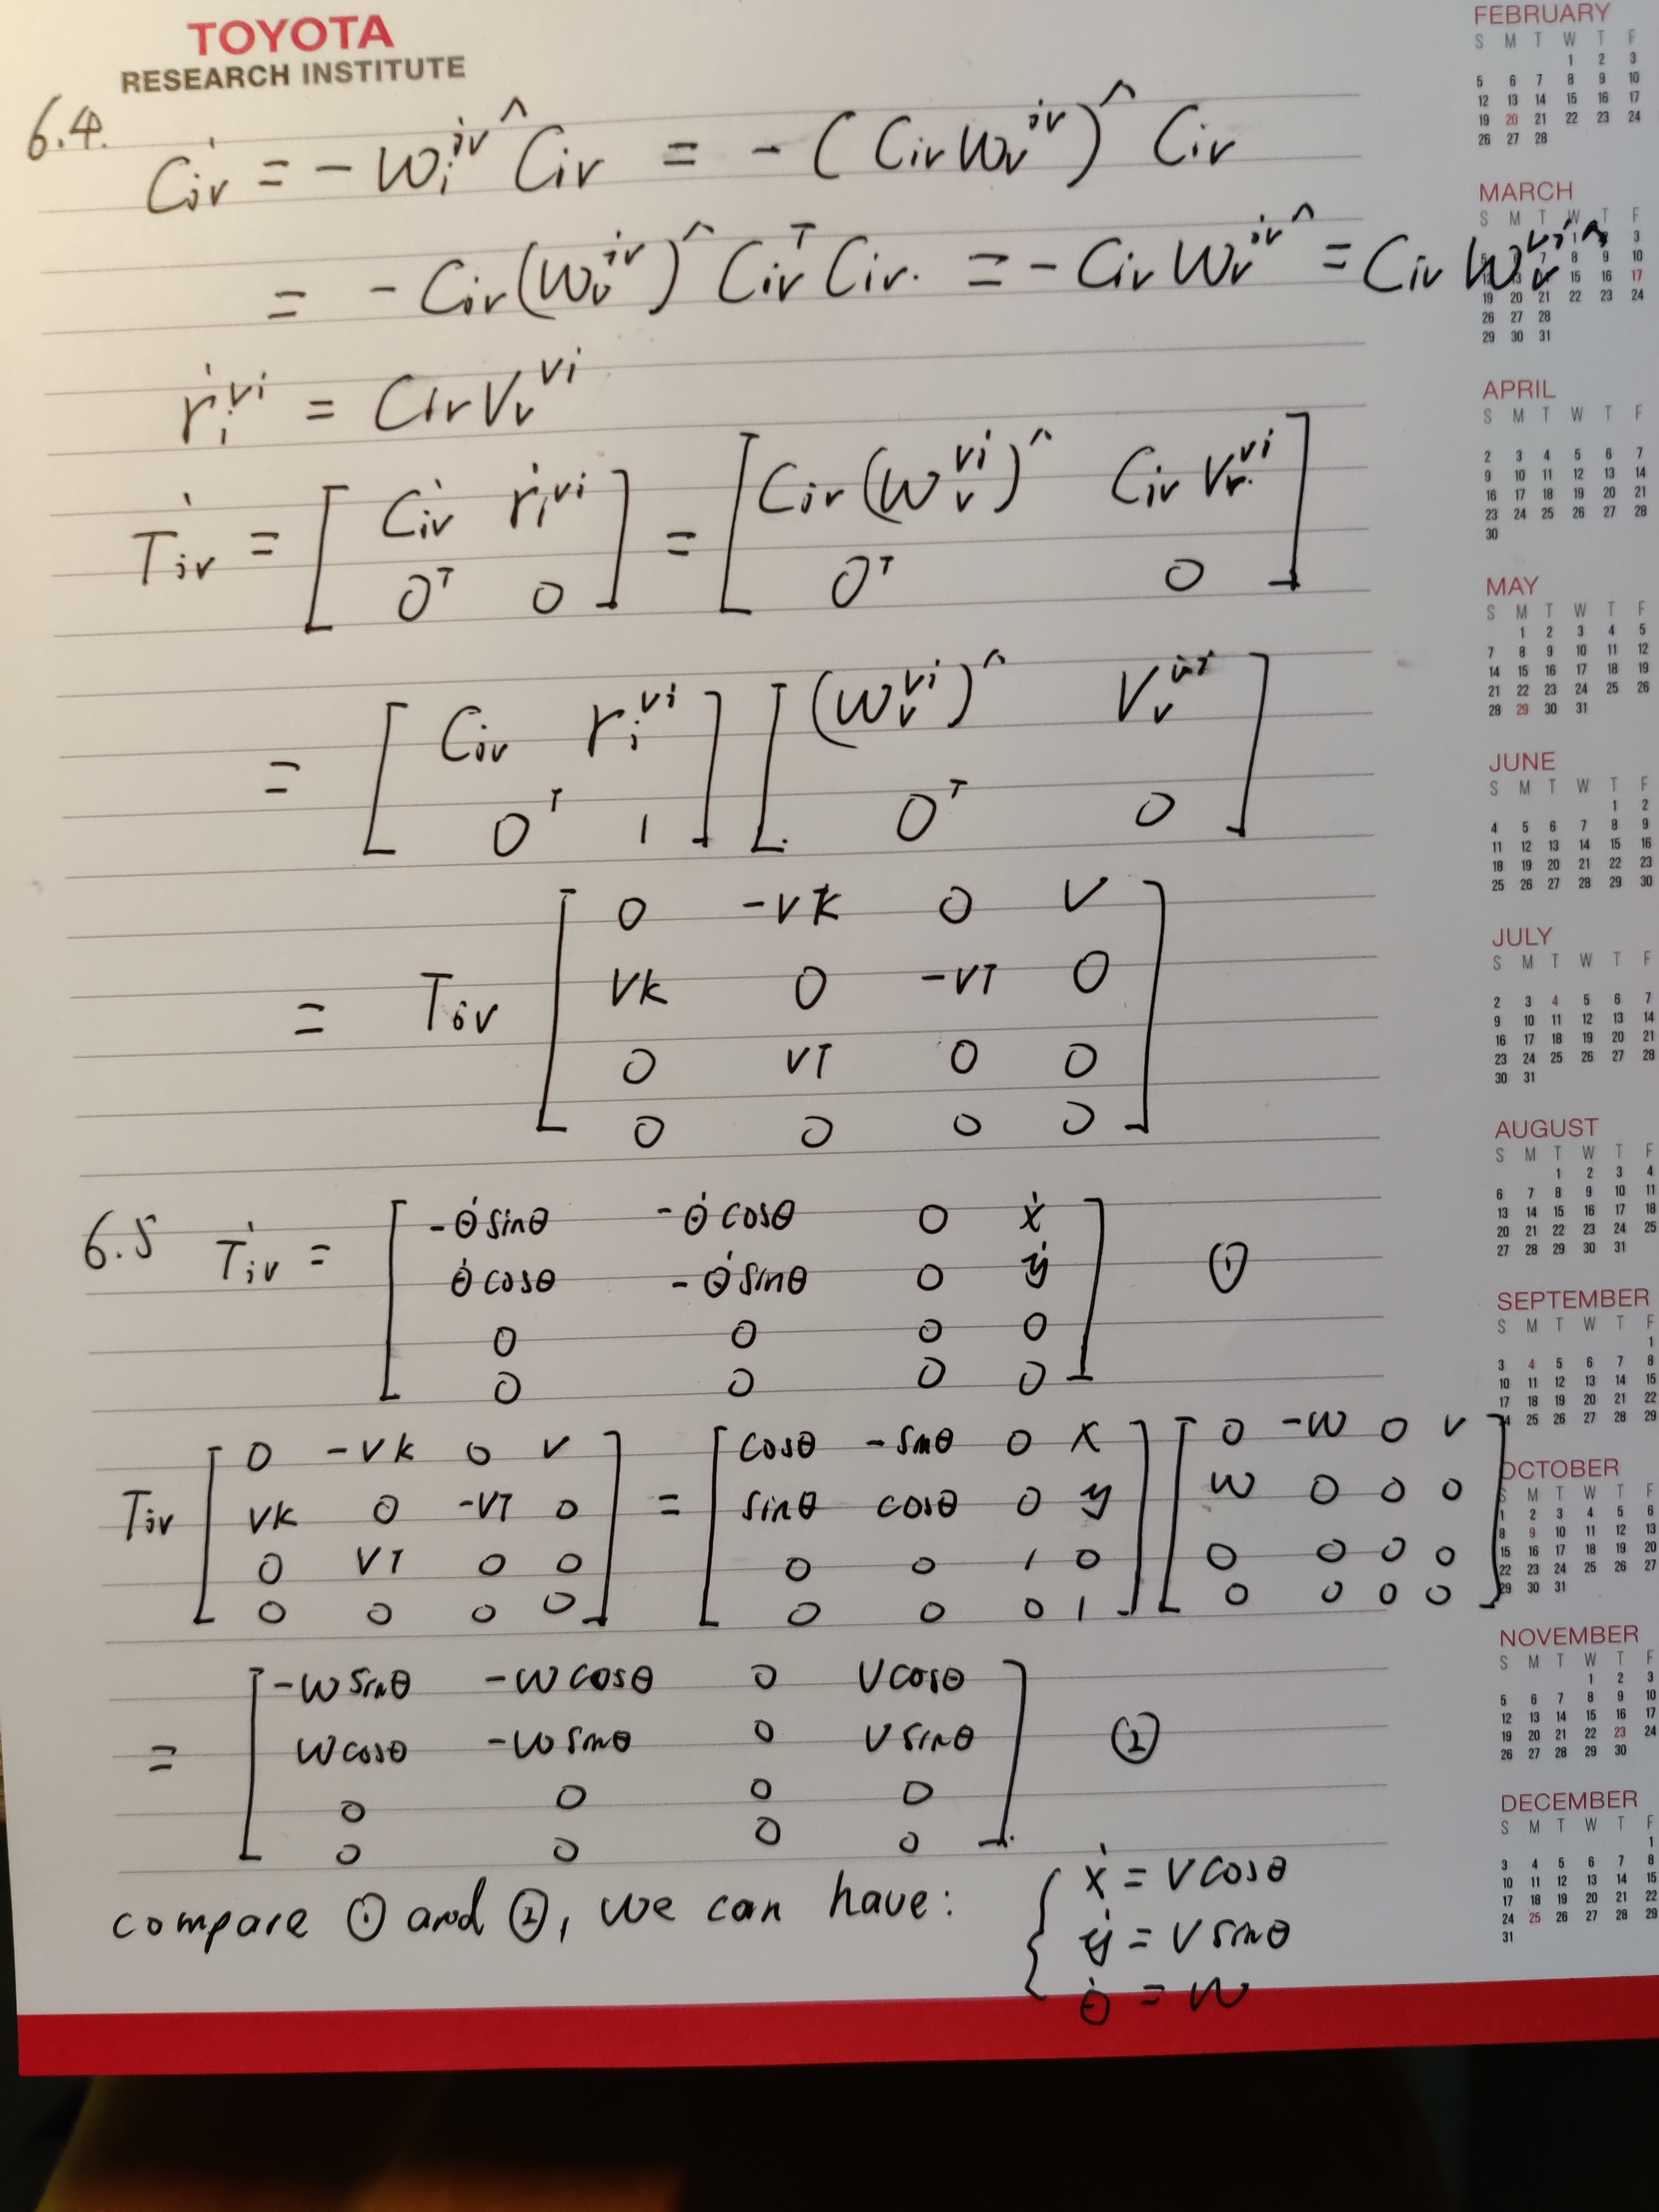 TOYOTA
RESEARCH INSTITUTE
6.4.
Ċiv = - wᵢ^iv^ Civ = - (Civ wᵥ^iv)^ Civ
= - Civ (wᵥ^iv)^ Civ^T Civ. = - Civ wᵥ^iv^ = Civ wᵥ^vi^
ṙᵢ^vi = Civ Vᵥ^vi
Ṫiv = [ Ċiv ṙᵢ^vi ; 0^T 0 ] = [ Civ (wᵥ^vi)^ Civ Vᵥ^vi ; 0^T 0 ]
= [ Civ rᵢ^vi ; 0^T 1 ] [ (wᵥ^vi)^ Vᵥ^vi ; 0^T 0 ]
= Tiv [ 0 -vk 0 v ; vk 0 -vτ 0 ; 0 vτ 0 0 ; 0 0 0 0 ]
6.5 Ṫiv = [ -θ̇sinθ -θ̇cosθ 0 ẋ ; θ̇cosθ -θ̇sinθ 0 ẏ ; 0 0 0 0 ; 0 0 0 0 ] ①
Tiv [ 0 -vk 0 v ; vk 0 -vτ 0 ; 0 vτ 0 0 ; 0 0 0 0 ] = [ cosθ -sinθ 0 x ; sinθ cosθ 0 y ; 0 0 1 0 ; 0 0 0 1 ] [ 0 -w 0 v ; w 0 0 0 ; 0 0 0 0 ; 0 0 0 0 ]
= [ -wsinθ -wcosθ 0 vcosθ ; wcosθ -wsinθ 0 vsinθ ; 0 0 0 0 ; 0 0 0 0 ] ②
compare ① and ②, we can have: { ẋ = vcosθ
ẏ = vsinθ
θ̇ = w
FEBRUARY
S M T W T F
1 2 3
5 6 7 8 9 10
12 13 14 15 16 17
19 20 21 22 23 24
26 27 28
MARCH
S M T W T F
19 20 21 22 23 24
26 27 28
29 30 31
APRIL
S M T W T F
2 3 4 5 6 7
9 10 11 12 13 14
16 17 18 19 20 21
23 24 25 26 27 28
30
MAY
S M T W T F
1 2 3 4 5
7 8 9 10 11 12
14 15 16 17 18 19
21 22 23 24 25 26
28 29 30 31
JUNE
S M T W T F
1 2
4 5 6 7 8 9
11 12 13 14 15 16
18 19 20 21 22 23
25 26 27 28 29 30
JULY
S M T W T F
2 3 4 5 6 7
9 10 11 12 13 14
16 17 18 19 20 21
23 24 25 26 27 28
30 31
AUGUST
S M T W T F
1 2 3 4
6 7 8 9 10 11
13 14 15 16 17 18
20 21 22 23 24 25
27 28 29 30 31
SEPTEMBER
S M T W T F
1
3 4 5 6 7 8
10 11 12 13 14 15
17 18 19 20 21 22
25 26 27 28 29
OCTOBER
S M T W T F
1 2 3 4 5 6
8 9 10 11 12 13
15 16 17 18 19 20
22 23 24 25 26 27
29 30 31
NOVEMBER
S M T W T F
1 2 3
5 6 7 8 9 10
12 13 14 15 16 17
19 20 21 22 23 24
26 27 28 29 30
DECEMBER
S M T W T F
1
3 4 5 6 7 8
10 11 12 13 14 15
17 18 19 20 21 22
24 25 26 27 28 29
31